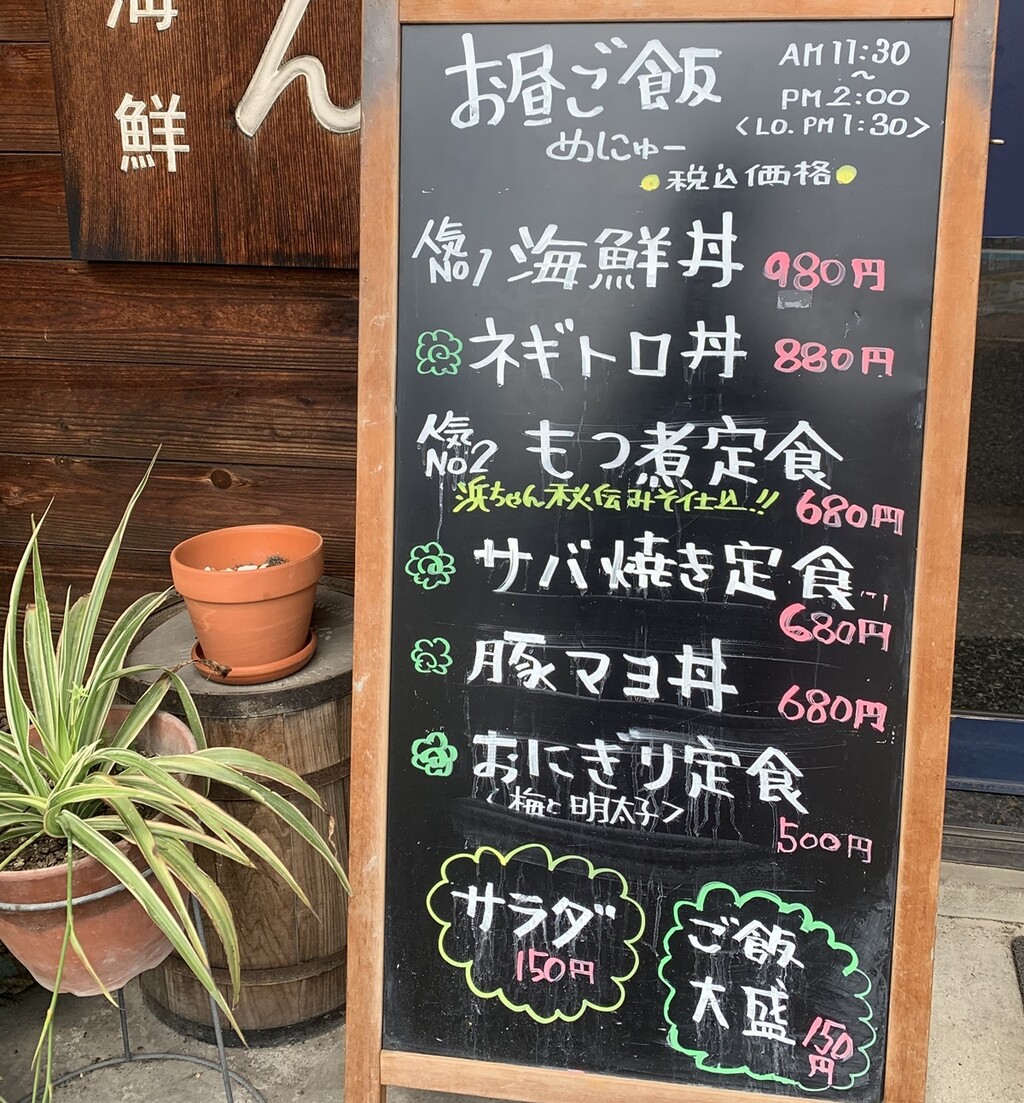 海
鮮
ん
お昼ご飯
めにゅー
AM 11:30
~
PM 2:00
<LO. PM 1:30>
税込価格
人気No1 海鮮丼 980円
ネギトロ丼 880円
人気No2 もつ煮定食
浜ちゃん秘伝みそ仕込!! 680円
サバ焼き定食
680円
豚マヨ丼 680円
おにぎり定食
<梅と明太子> 500円
サラダ
150円
ご飯
大盛
150円